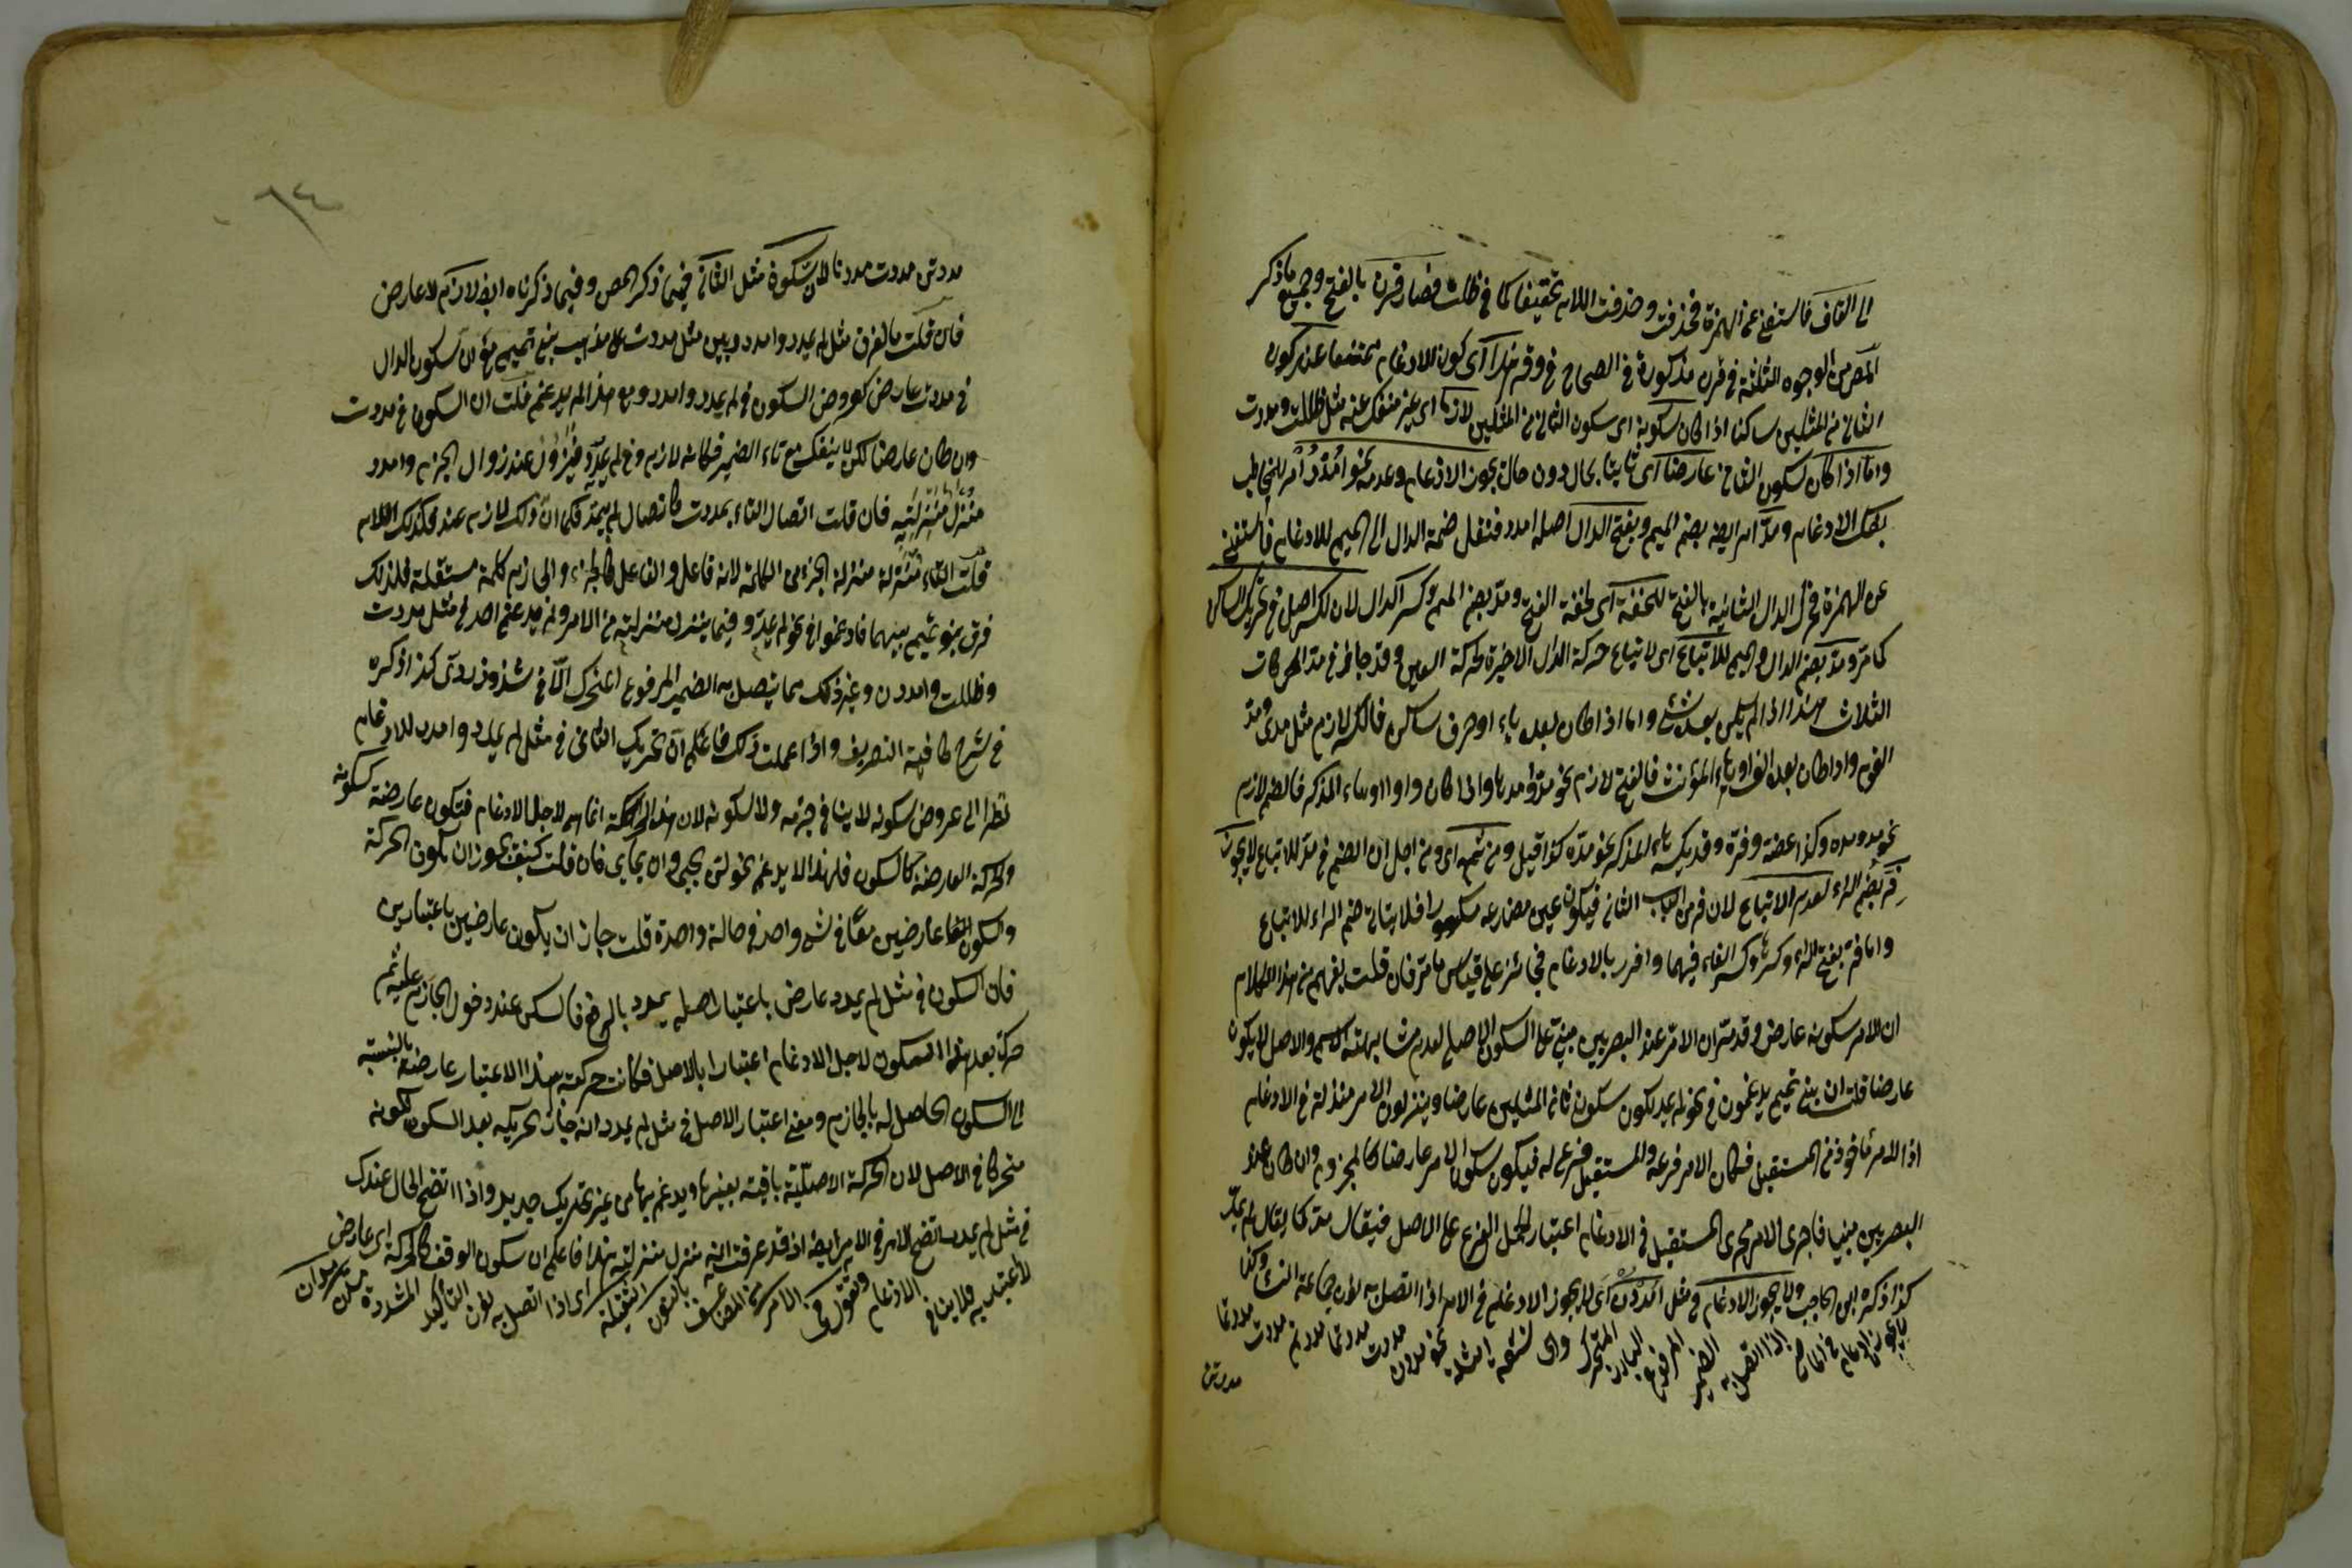 الى القاف فاستغنى عن الهمزة فحذفت وحذفت اللام تخفيفا كما في ظلت فصار قرن بالفتح وجميع ما ذكر
المص من الوجوه الثلثة في قرن مذكورة في الصحاح في وقر هذا اى كون الادغام ممتنعا عند كون
الثاني من المثلين ساكنا اذا كان سكونه اى سكون الثاني من المثلين لازما اى غير منفك عنه مثل ظللت ومددت
واما اذا كان سكون الثاني عارضا اى ثابتا بحال دون حال يجوز الادغام وعدمه نحو امدد امر للمخاطب
بفك الادغام ومد امر ايضا بضم الميم وبفتح الدال اصله امدد فنقل ضمة الدال الى الميم للادغام فاستغنى
عن الهمزة فحرك الدال الثانية بالفتح للخفة اى لخفة الفتح ومد بضم الميم وكسر الدال لان الكسر اصل في تحريك الساكن
كما مر ومد بضم الدال والميم للاتباع اى لاتباع حركة الدال الاخيرة لحركة العين وقد جاز في مد الحركات
الثلاث هذا اذا لم يكن بعده شئ واما اذا كان بعده ياء او حرف ساكن فالكسر لازم مثل مدى ومد
القوم واذا كان بعده الف او هاء المؤنث فالفتح لازم نحو مدا ومدها واذا كان واوا او هاء المذكر فالضم لازم
نحو مدوا ومده وكذا عضه وفره وقد يكسر هاء المذكر نحو مده كذا قيل ومن ثمه اى ومن اجل ان الضم في مد للاتباع لا يجوز
فر بضم الراء لعدم الاتباع لان فر من الباب الثاني فيكون عين مضارعه مكسورا فلا يتاتى ضم الراء للاتباع
واما فر بفتح الراء وكسرها وكسر الفاء فيهما وافرر بالادغام فجائز على قياس ما مر فان قلت يفهم من هذا الكلام
ان للامر سكونه عارض وقد مر ان الامر عند البصريين مبني على السكون الاصلي لعدم مشابهته الاسم والاصل لا يكون
عارضا قلت ان بني تميم يدغمون في نحو لم يمد لكون سكون ثاني المثلين عارضا وينزلون الامر منزلة في الادغام
اذ الامر مأخوذ من المستقبل فكان الامر فرعه والمستقبل فرع له فيكون سكون الامر عارضا كالمجزوم وان كان عند
البصريين مبنيا فاجرى الامر مجرى المستقبل في الادغام اعتبار لحمل الفرع على الاصل فيقال مد كما يقال لم يمد
كذا ذكره ابن الحاجب ولا يجوز الادغام في مثل امددن اى لا يجوز الادغام في الامر اذا اتصل به نون جماعة النساء وكذا
لا يجوز الادغام في الماضي اذا اتصل به الضمير المرفوع البارز المتحرك وان نحو مددن مددت مددتما مددتم مددت مددتما
مددتن
مددتن مددت مددنا لان سكونه مثل الثاني فيما ذكر المص وفيما ذكرناه ايضا لازم لا عارض
فان قلت ما الفرق مثل لم يمدد وامدد وبين مثل مددت على مذهب بني تميم مع ان سكون الدال
في مددت عارض كعروض السكون في لم يمدد وامدد ومع هذا لم يدغم قلت ان السكون في مددت
وان كان عارضا لكن لا ينفك مع تاء الضمير فكانه لازم وفي لم يمدد فيزول عند زوال الجزم وامدد
منزل منزلته فان قلت اتصال التاء بمددت كاتصال لم بيمد فكما ان ذلك لازم عند فكذلك اللام
قلت التاء منزلة منزلة الجزء من الكلمة لانه فاعل والفاعل كالجزء والجازم كلمة مستقلة فلذلك
فرق بنو تميم بينهما فادغموا في نحو لم يمد وفيما ينزل منزلته من الامر ولم يدغم احد في مثل مددت
وظللت وامددن وغير ذلك مما يتصل به الضمير المرفوع المتحرك الا في شذوذ ردى كذا ذكره
في شرح كافية التصريف واذا علمت ذلك فاعلم ان تحريك الثاني في مثل لم يمدد وامدد للادغام
نظرا الى عروض سكونه لا ينافي جزمه ولا سكونه لان هذه الحركة انما هي لاجل الادغام فتكون عارضة كسكونه
والحركة العارضة كالسكون فلهذا لا يدغم نحو لن يحيى وان يحايى فان قلت كيف يجوز ان يكون الحركة
والسكون عارضين معا في شئ واحد في حالة واحدة قلت جاز ان يكون عارضين باعتبارين
فان السكون في مثل لم يمدد عارض باعتبار اصله يمدد بالرفع فاسكن عند دخول الجازم عليه ثم
حرك بعد هذا السكون لاجل الادغام اعتبارا بالاصل فكانت حركته بهذا الاعتبار عارضة بالنسبة
الى السكون الحاصل له بالجازم ومعنى اعتبار الاصل في مثل لم يمدد انه جاز تحريكه بعد السكون لكونه
متحركا في الاصل لان الحركة الاصلية باقية بعينها ويدغم بها من غير تحريك جديد واذا اتضح الحال عندك
في مثل لم يمدد اتضح الامر في الامر ايضا اذ قد عرفت انه منزل منزلته هذا فاعلم ان سكون الوقف كالحركة اى عارض
لا يعتد به فلا ينافي الادغام وتقول في الامر من المضاعف بالنون الثقيلة اى اذا اتصل به نون التأكيد المشددة مدن مدان